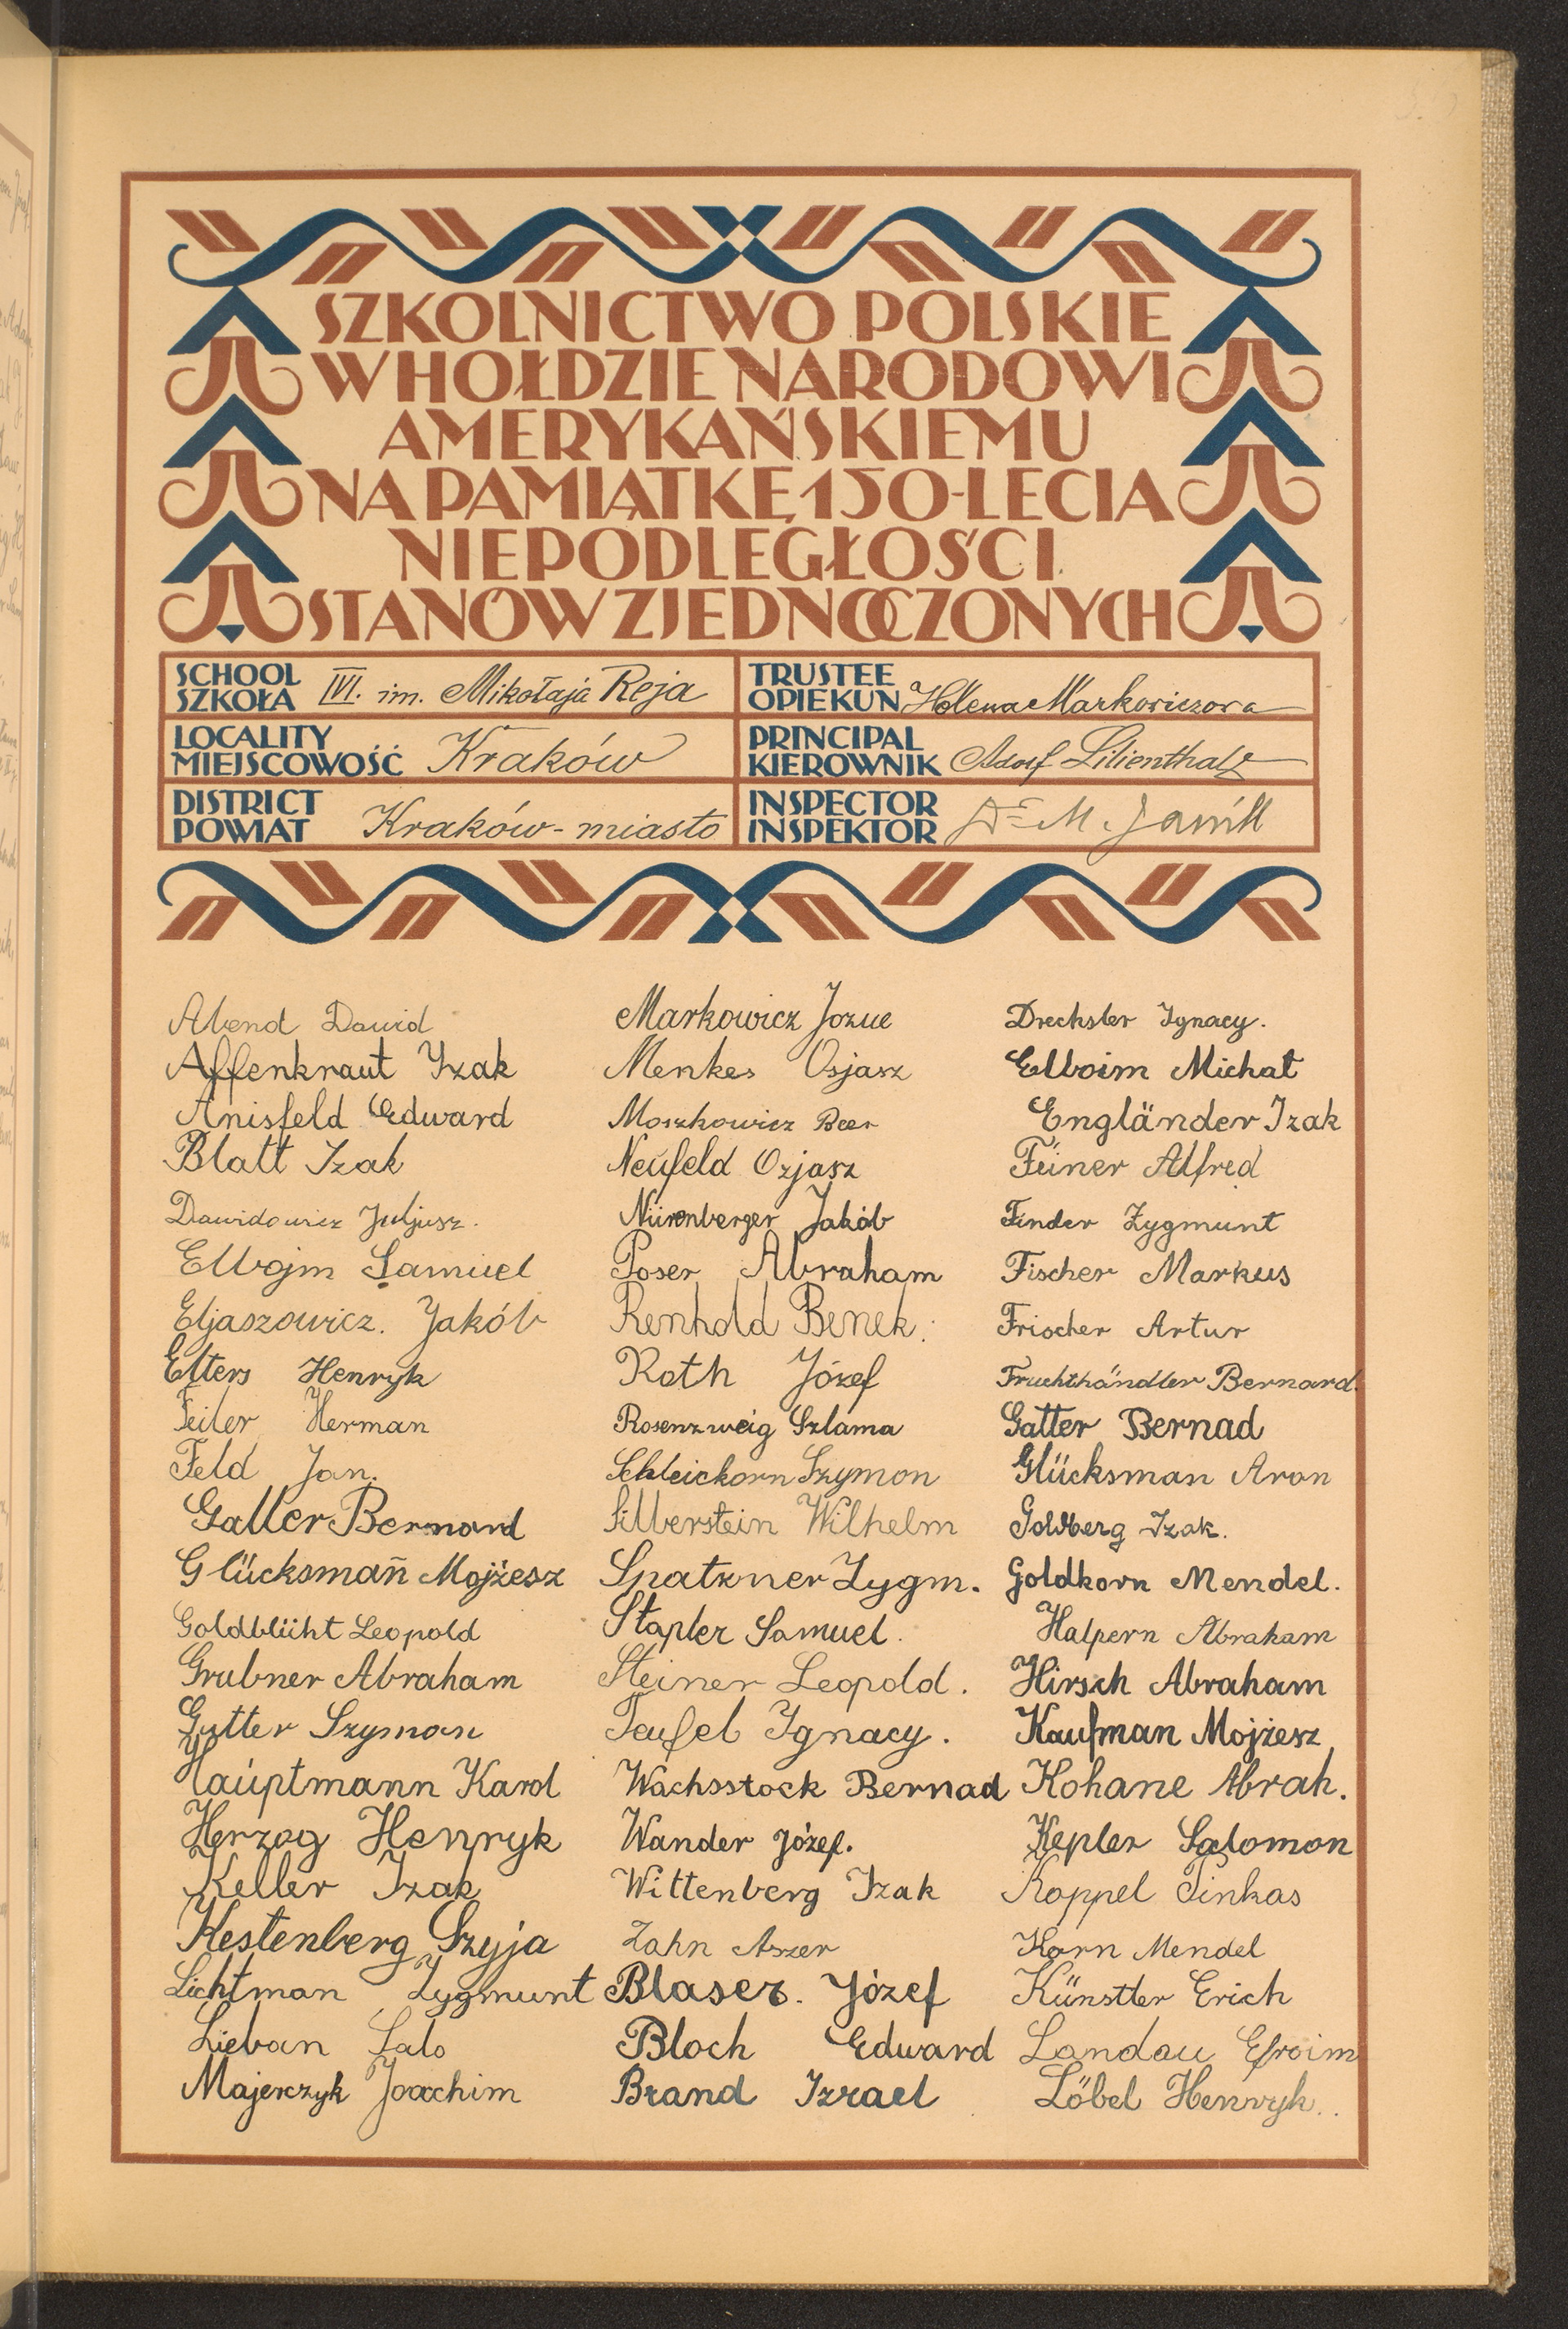 SZKOLNICTWO POLSKIE
W HOŁDZIE NARODOWI
AMERYKAŃSKIEMU
NA PAMIĄTKĘ 150-LECIA
NIEPODLEGŁOŚCI
STANÓW ZJEDNOCZONYCH
SCHOOL
SZKOŁA IVI. im. Mikołaja Reja
TRUSTEE
OPIEKUN Helena Markowiczowa
LOCALITY
MIEJSCOWOŚĆ Kraków
PRINCIPAL
KIEROWNIK Adolf Lilienthal
DISTRICT
POWIAT Kraków-miasto
INSPECTOR
INSPEKTOR Dr M.
Abend Dawid
Affenkraut Izak
Anisfeld Edward
Blatt Izak
Dawidowicz Juljusz.
Elbojm Samuel
Eljaszowicz. Jakób
Elters Henryk
Feiler Herman
Feld Jan.
Galler Bernard
Glücksmañ Mojżesz
Goldblüht Leopold
Grubner Abraham
Gutter Szymon
Hauptmann Karol
Herzog Henryk
Keller Izak
Kestenberg Szyja
Lichtman Zygmunt
Lieban Salo
Majerczyk Joachim
Markowicz Jozue
Menkes Osjasz
Moszkowicz Beer
Neufeld Ozjasz
Nürenberger Jakób
Poser Abraham
Renhold Benek.
Roth Józef
Rosenzweig Szlama
Schleichorn Szymon
Silberstein Wilhelm
Spatzner Zygm.
Stapler Samuel.
Steiner Leopold.
Teufel Ignacy.
Wachsstock Bernad
Wander Józef.
Wittenberg Izak
Zahn Aszer
Blaser. Józef
Bloch Edward
Brand Izrael
Drechsler Ignacy.
Elboim Michał
Engländer Izak
Feiner Alfred
Finder Zygmunt
Fischer Markus
Frischer Artur
Fruchthändler Bernard.
Gatter Bernad
Glücksman Aron
Goldberg Izak.
Goldkorn Mendel.
Halpern Abraham
Hirsch Abraham
Kaufman Mojżesz
Kohane Abrah.
Kepler Salomon
Koppel Pinkas
Korn Mendel
Künstler Erich
Landau Efroim
Löbel Henryk.